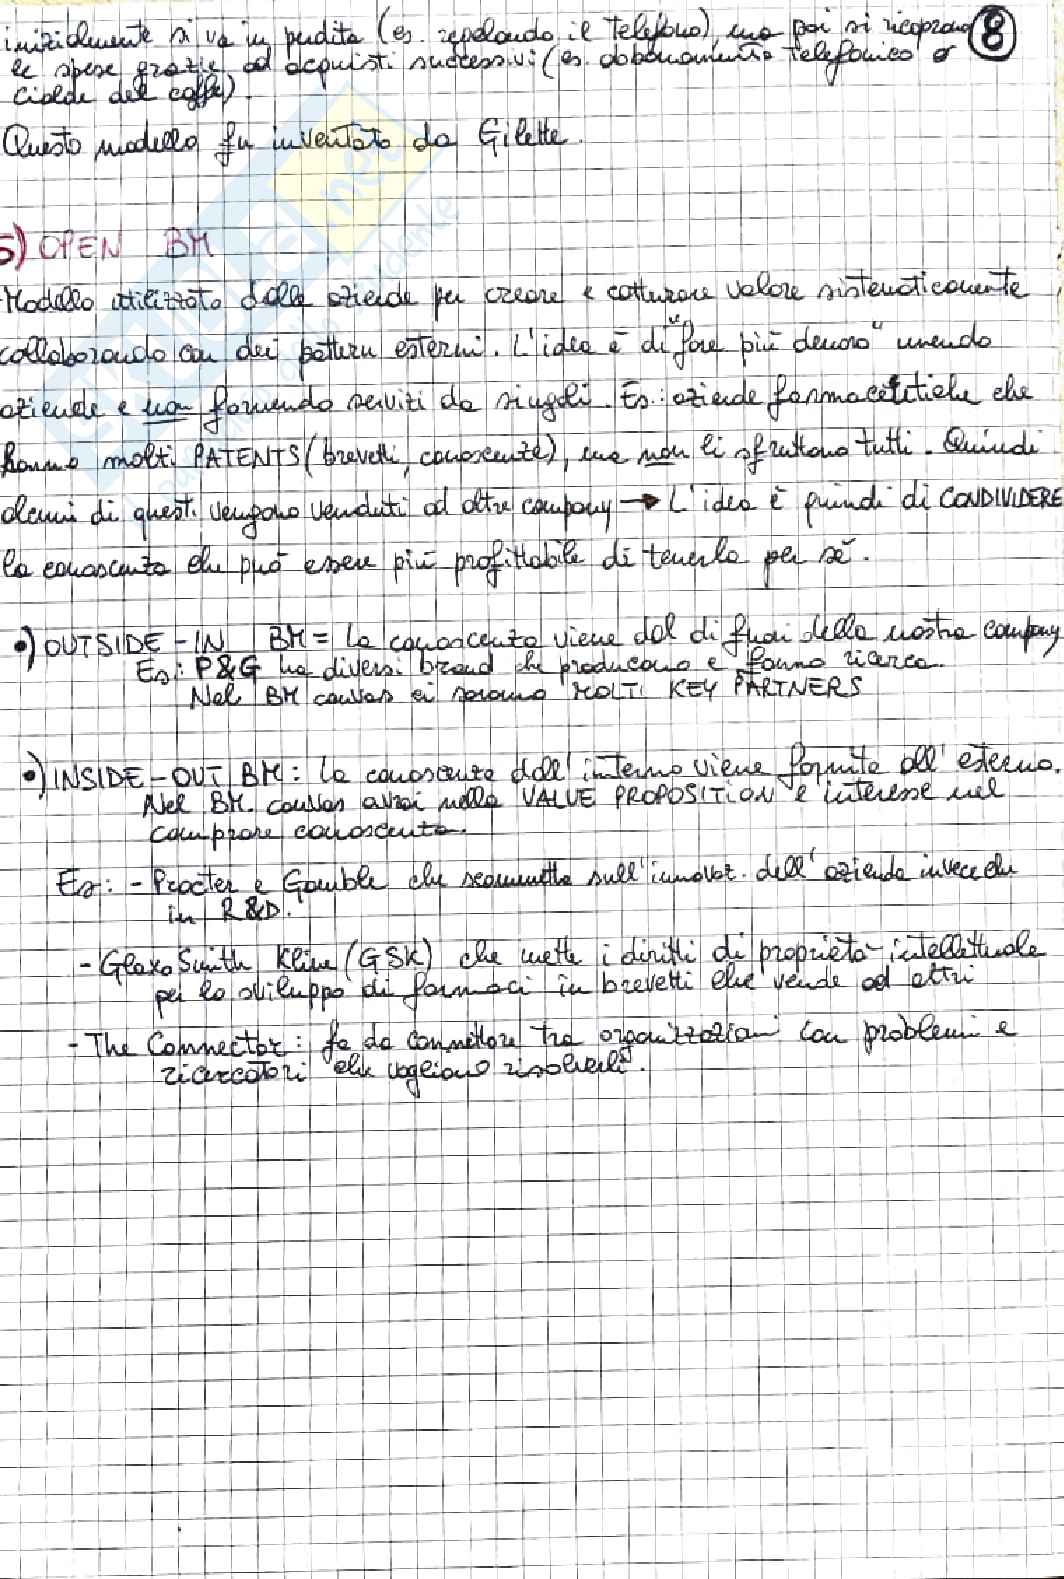 inizialmente si va in perdita (es. regalando il telefono), ma poi si ricoprono 8
le spese grazie ad acquisti successivi (es. abbonamento telefonico o
cialde del caffè).
Questo modello fu inventato da Gilette.
5) OPEN BM
Modello utilizzato dalle aziende per creare e catturare valore sistematicamente
collaborando con dei partner esterni. L'idea è di "fare più denaro" unendo
aziende e non fornendo servizi da singoli. Es.: aziende farmaceutiche che
hanno molti PATENTS (brevetti, conoscenze), ma non li sfruttano tutti. Quindi
alcuni di questi vengono venduti ad altre company → L'idea è quindi di CONDIVIDERE
la conoscenza che può essere più profittabile di tenerla per sè.
•) OUTSIDE-IN BM = la conoscenza viene dal di fuori della nostra company
Es: P&G ha diversi brand che producono e fanno ricerca.
Nel BM canvas ci saranno MOLTI KEY PARTNERS
•) INSIDE-OUT BM: la conoscenza dall'interno viene fornita all'esterno.
Nel BM. canvas avrai nella VALUE PROPOSITION e interesse nel
comprare conoscenza.
Es: - Procter e Gamble che scommette sull'innovaz. dell'azienda invece che
in R&D.
- Glaxo Smith Kline (GSK) che mette i diritti di proprietà intellettuale
per lo sviluppo di farmaci in brevetti che vende ad altri
- The Connector: fa da connettore tra organizzazioni con problemi e
ricercatori che vogliono risolverli.